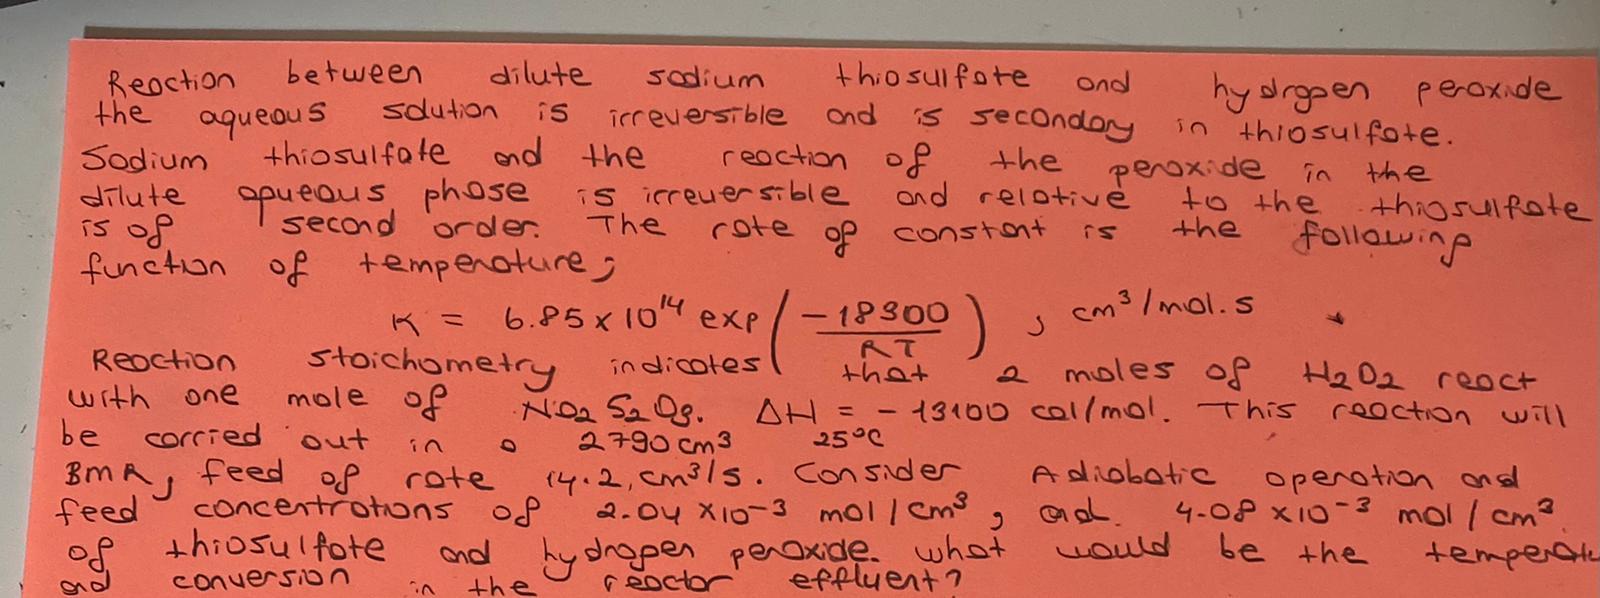 Reaction between dilute sodium thiosulfate and hydrogen peroxide
the aqueous solution is irreversible and is secondary in thiosulfate.
Sodium thiosulfate and the reaction of the peroxide in the
dilute aqueous phase is irreversible and relative to the thiosulfate
is of second order. The rate of constant is the following
function of temperature;
K = 6.85 x 10^14 exp (-18300 / RT) , cm³/mol.s
Reaction stoichometry indicates that 2 moles of H2O2 react
with one mole of Na2 S2 O3. ΔH = - 13100 cal/mol. This reaction will
be carried out in a 2790 cm³ 25°C
BMR, feed of rate 14.2, cm³/s. Consider Adiabatic operation and
feed concentrations of 2.04 x10-3 mol / cm³, and. 4.08 x10-3 mol / cm³.
of thiosulfate and hydrogen peroxide. what would be the temperatu
and conversion in the reactor effluent?